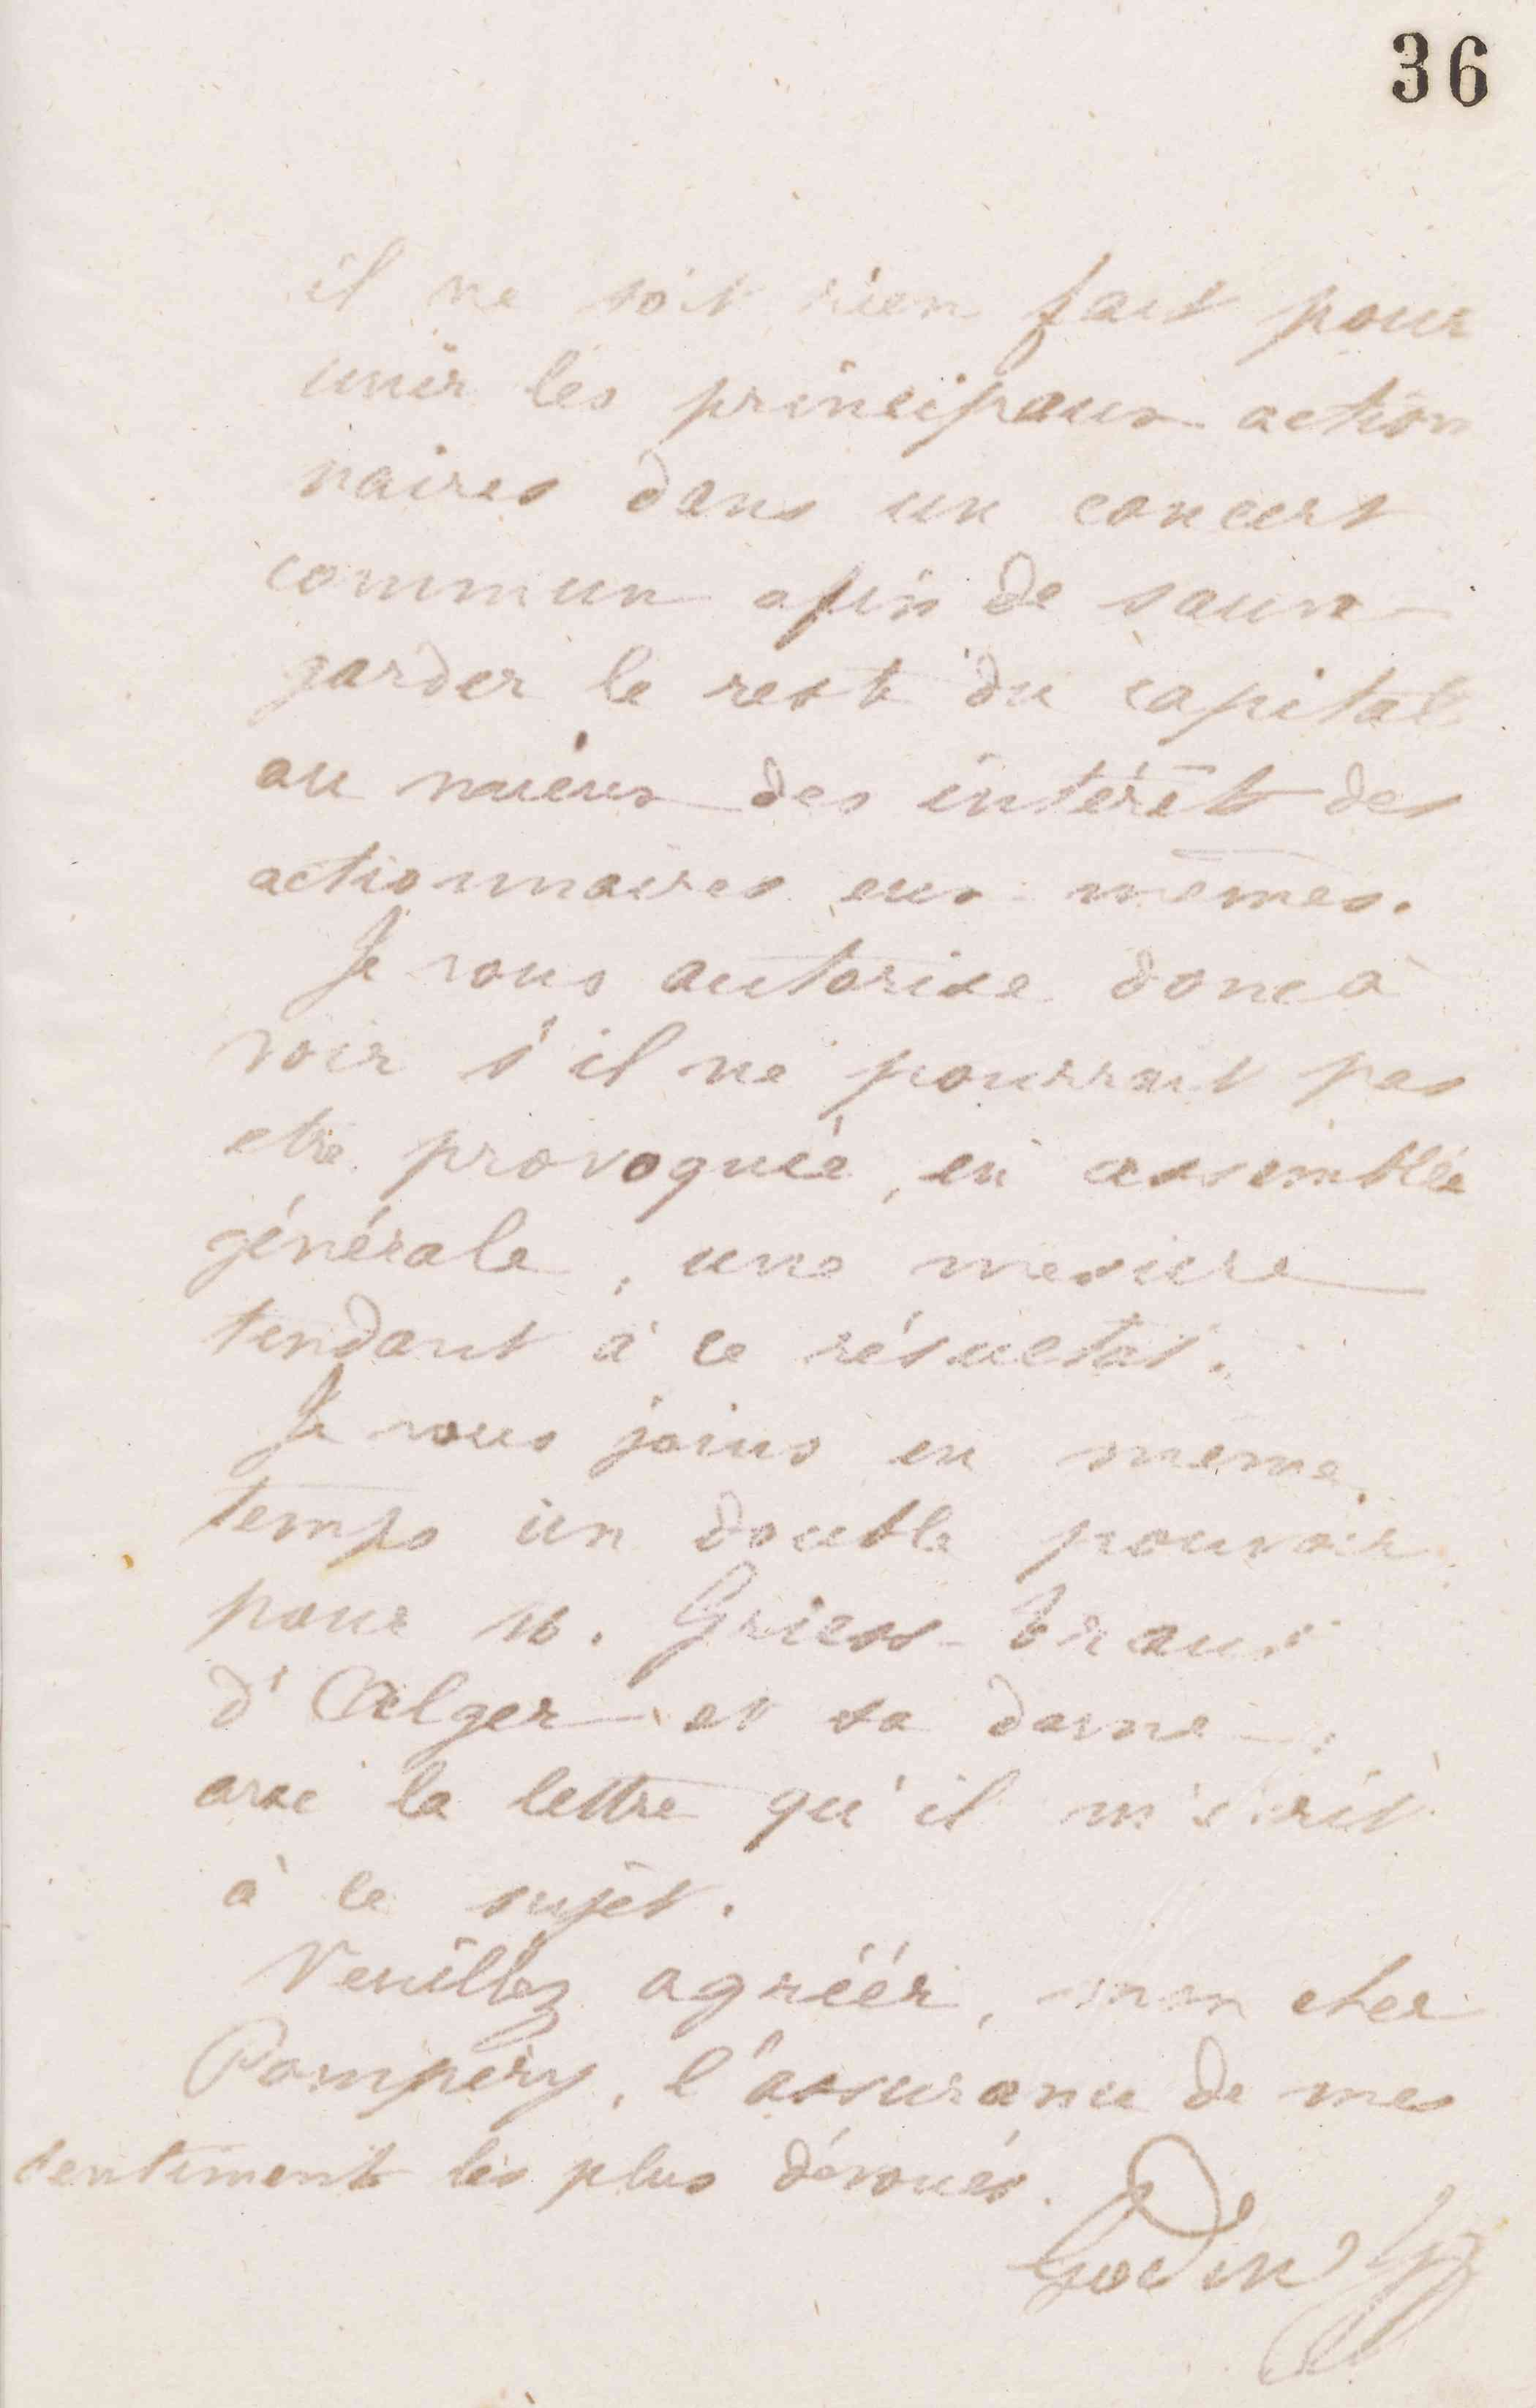 36
il ne soit rien fait pour
unir les principaux action
naires dans un concert
commun afin de sauve-
garder le reste du capital
au mieux des intérêts des
actionnaires eux-mêmes.
Je vous autorise donc à
voir s'il ne pourrait pas
etre provoquée, en assemblée
générale, une mesure
tendant à ce résultat.
Je vous joins en même
temps un double pouvoir
pour M. Griess-Traut
d'Alger et sa dame
avec la lettre qu'il m'écrit
à ce sujet.
Veuillez agréér, mon cher
Pompery, l'assurance de mes
sentiments les plus dévoués.
Godin